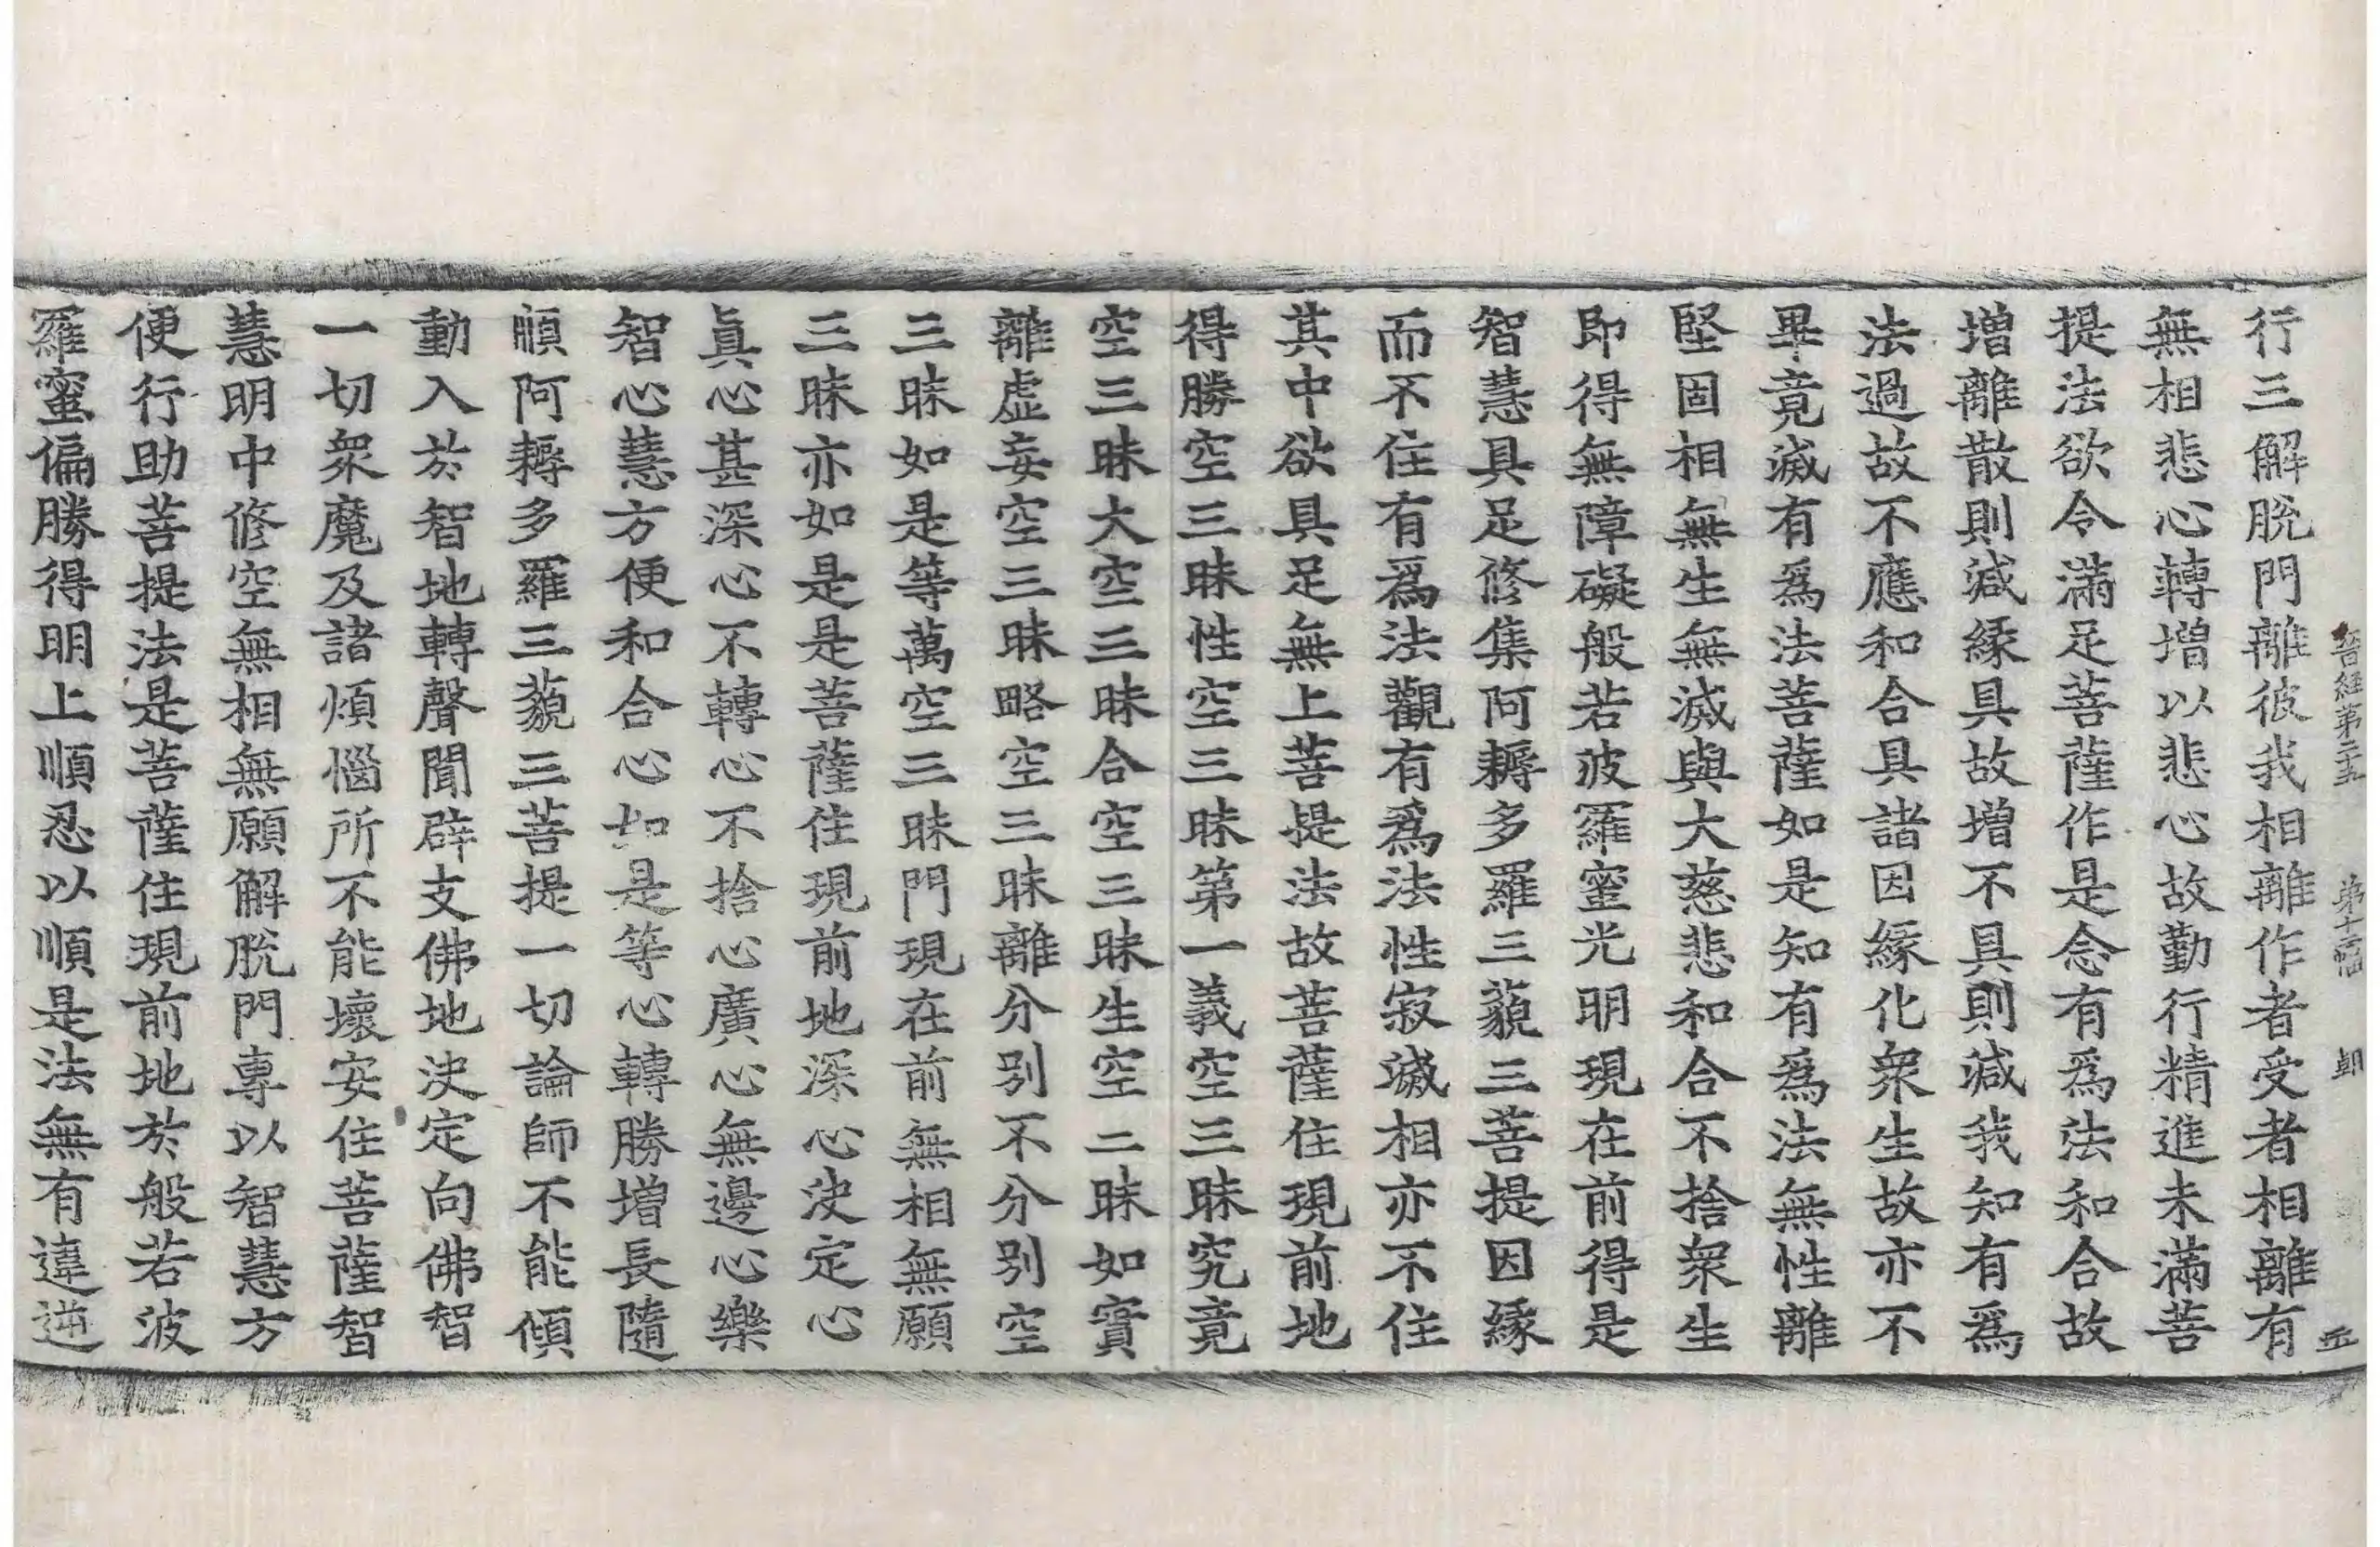 晉經第二十五 第十一幅 朝 五
行三解脫門離彼我相離作者受者相離有
無相悲心轉增以悲心故勤行精進未滿菩
提法欲令滿足菩薩作是念有爲法和合故
增離散則減緣具故增不具則減我知有爲
法過故不應和合具諸因緣化衆生故亦不
畢竟滅有爲法菩薩如是知有爲法無性離
堅固相無生無滅與大慈悲和合不捨衆生
即得無障礙般若波羅蜜光明現在前得是
智慧具足修集阿耨多羅三藐三菩提因緣
而不住有爲法觀有爲法性寂滅相亦不住
其中欲具足無上菩提法故菩薩住現前地
得勝空三昧性空三昧第一義空三昧究竟
空三昧大空三昧合空三昧生空二昧如實
離虛妄空三昧略空三昧離分別不分別空
三昧如是等萬空三昧門現在前無相無願
三昧亦如是是菩薩住現前地深心決定心
眞心甚深心不轉心不捨心廣心無邊心樂
智心慧方便和合心如是等心轉勝增長隨
順阿耨多羅三藐三菩提一切論師不能傾
動入於智地轉聲聞辟支佛地決定向佛智
一切衆魔及諸煩惱所不能壞安住菩薩智
慧明中修空無相無願解脫門專以智慧方
便行助菩提法是菩薩住現前地於般若波
羅蜜偏勝得明上順忍以順是法無有違逆